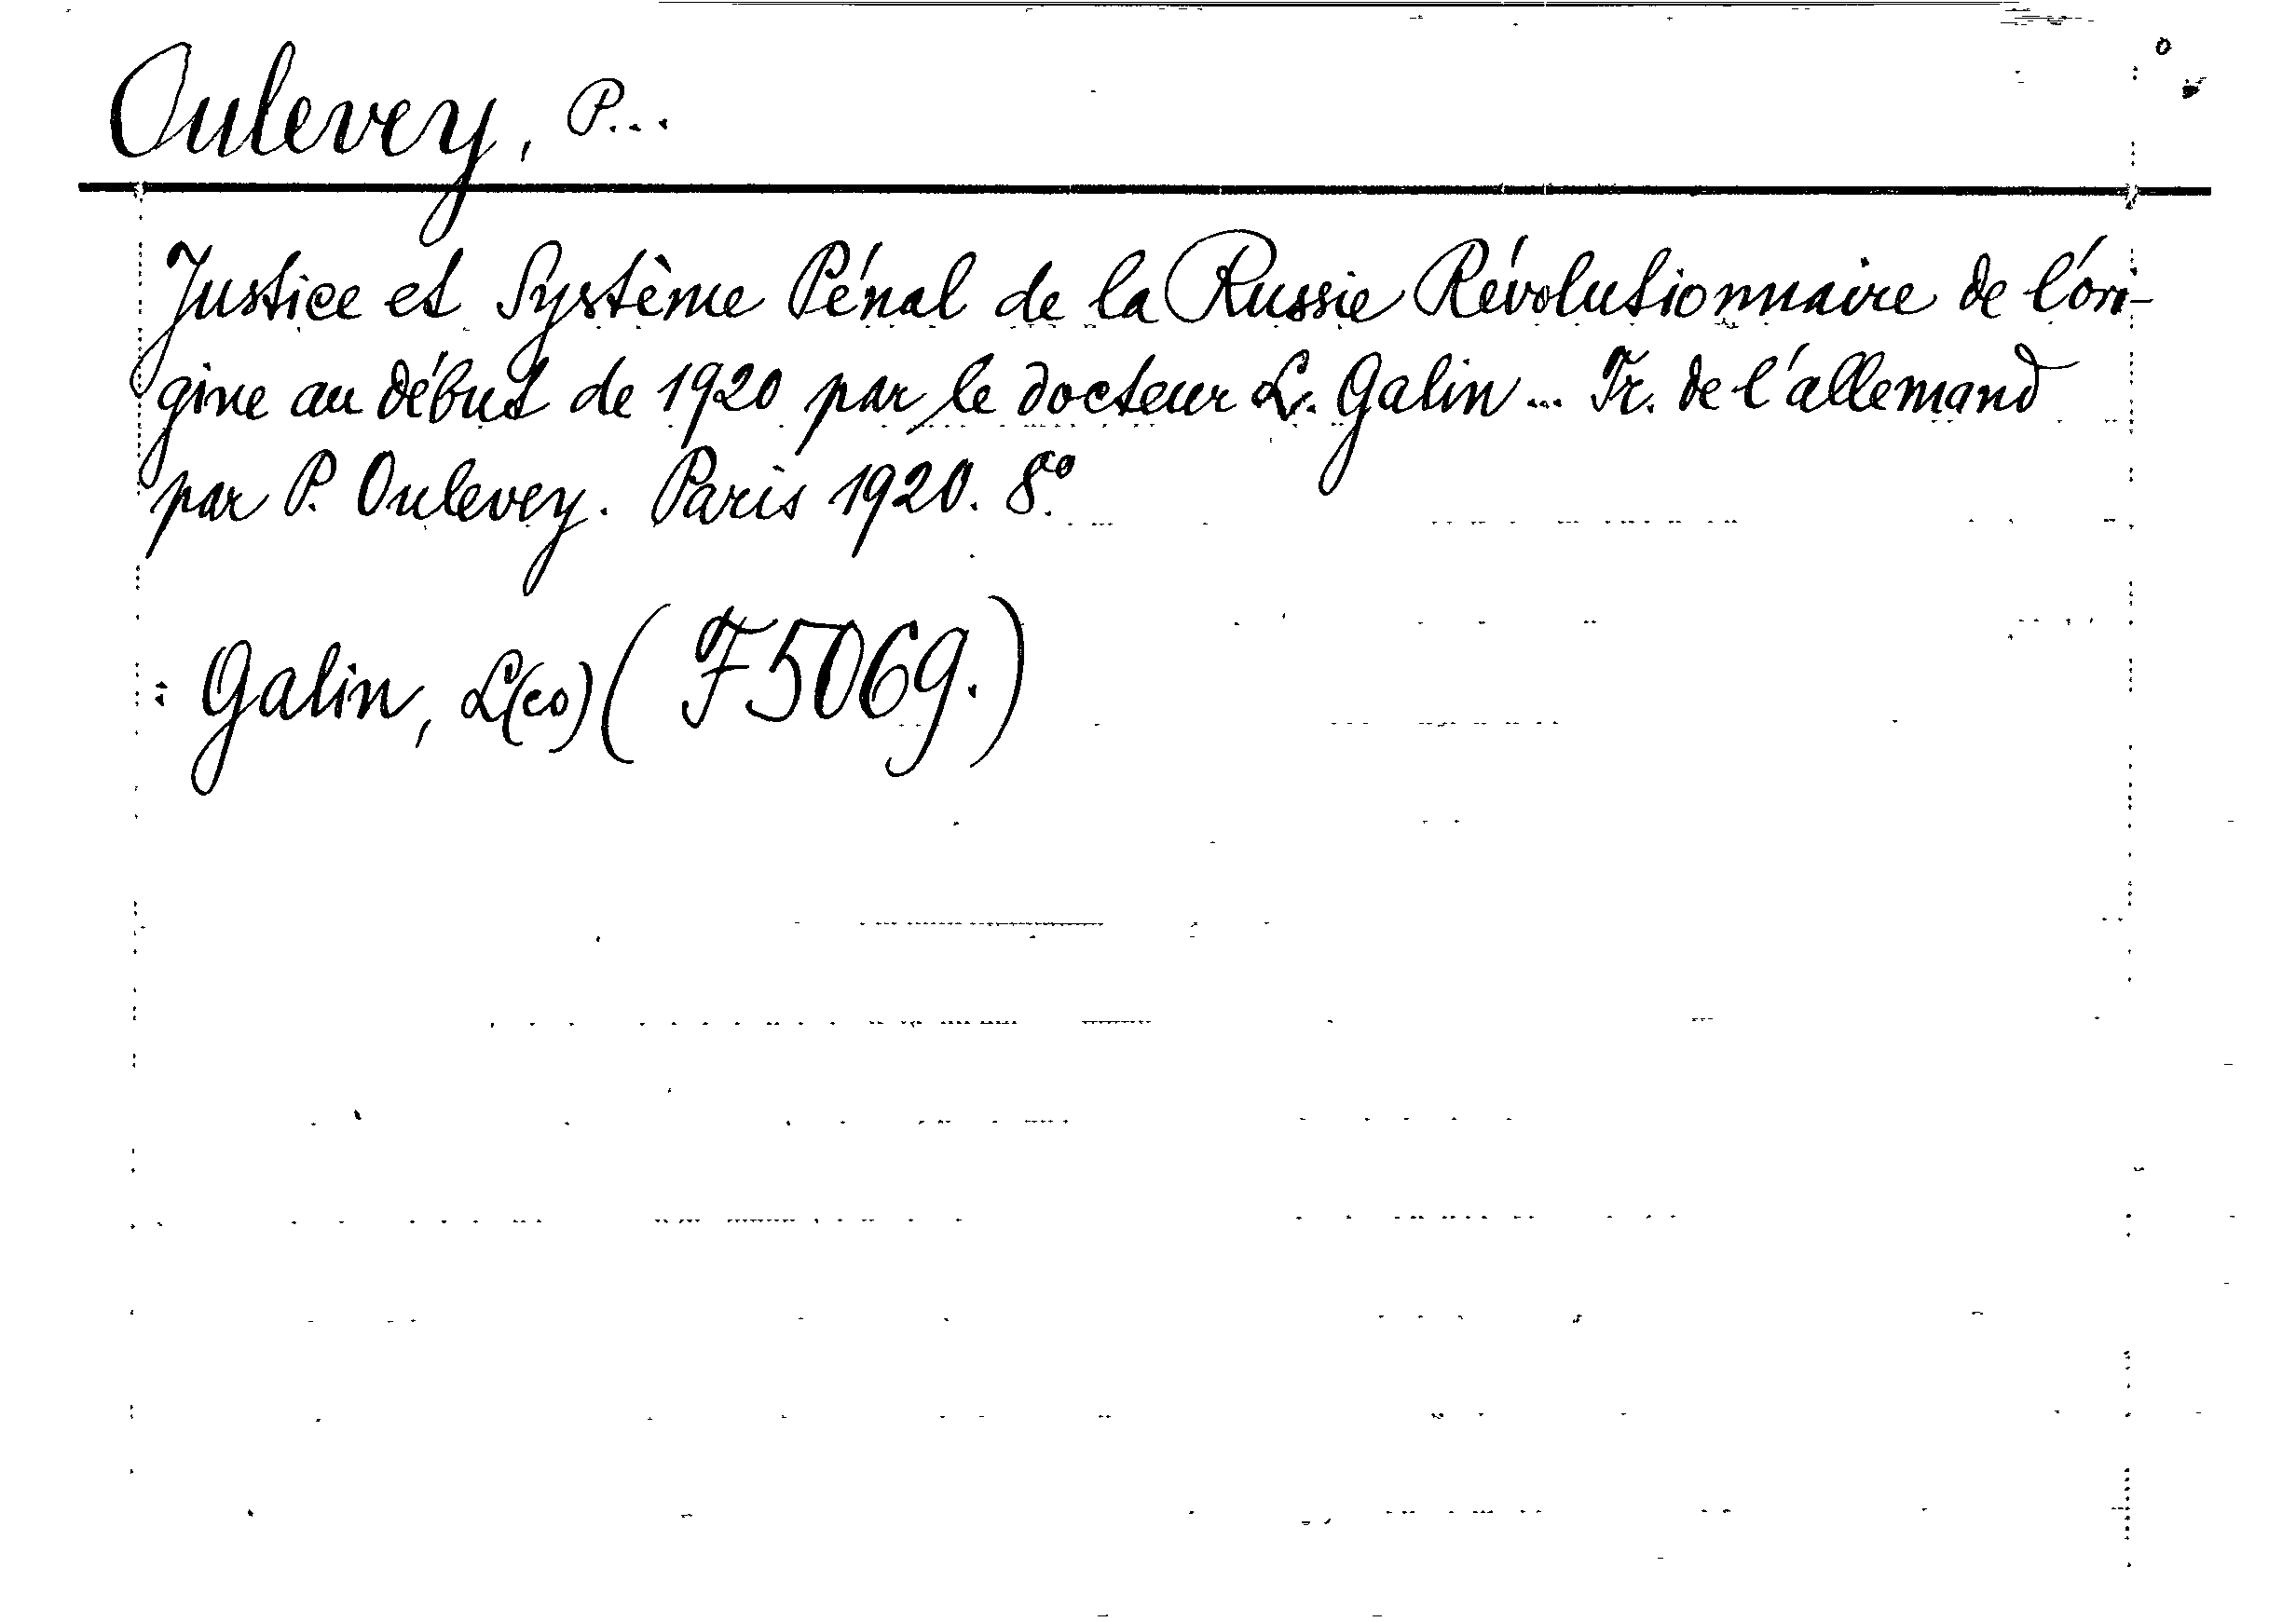 Oulevey, P...
Justice et Système Pénal de la Russie Révolutionnaire de l'ori-
gine au début de 1920 par le docteur L. Galin... Tr. de l'allemand
par P. Oulevey. Paris 1920. 8.º
: Galin, L(eo) (F 5069.)